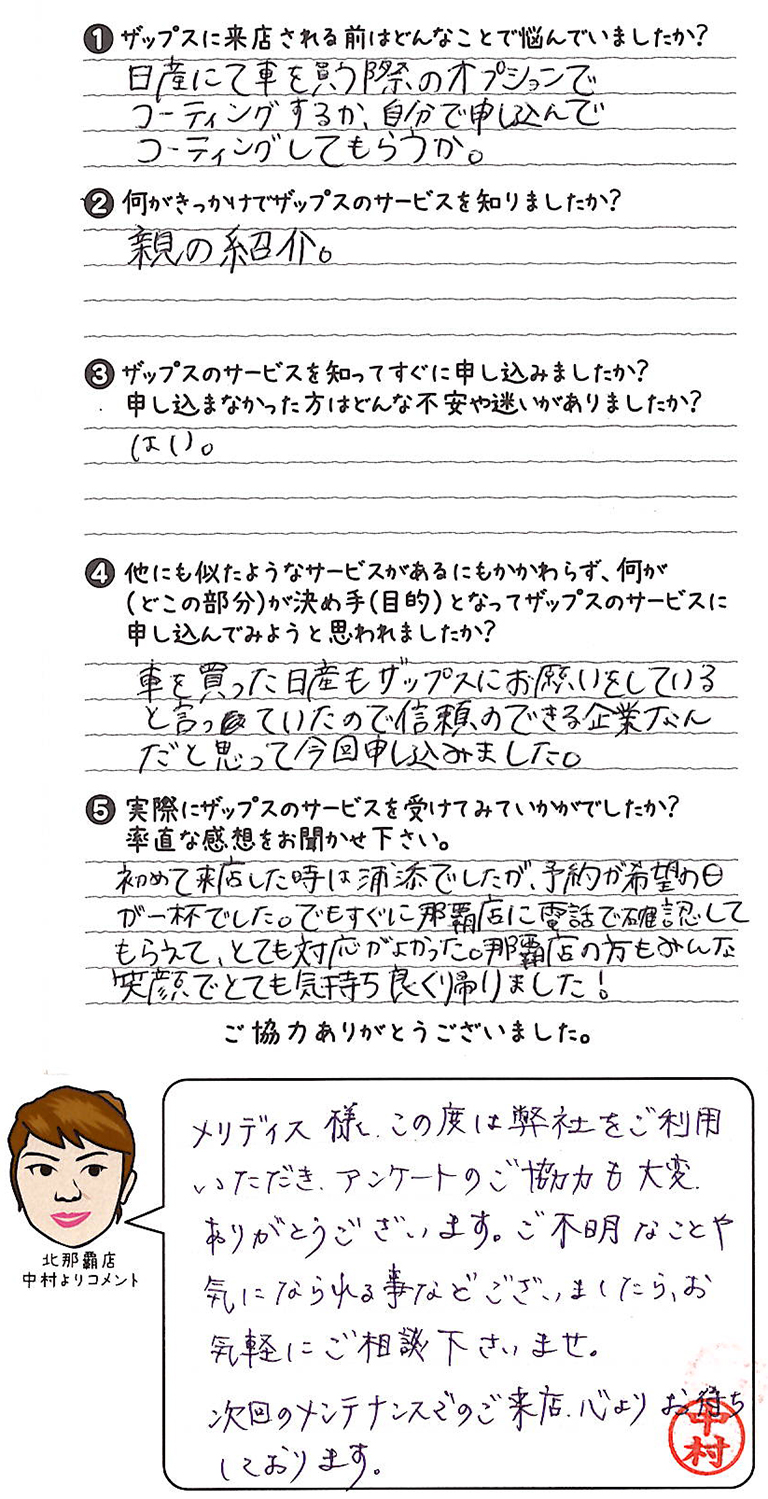 1 ザップスに来店される前はどんなことで悩んでいましたか?
日産にて車を買う際のオプションで
コーティングするか、自分で申し込んで
コーティングしてもらうか。
2 何がきっかけでザップスのサービスを知りましたか?
親の紹介。
3 ザップスのサービスを知ってすぐに申し込みましたか?
申し込まなかった方はどんな不安や迷いがありましたか?
はい。
4 他にも似たようなサービスがあるにもかかわらず、何が
(どこの部分)が決め手(目的)となってザップスのサービスに
申し込んでみようと思われましたか?
車を買った日産もザップスにお願いをしている
と言っていたので信頼のできる企業なん
だと思って今回申し込みました。
5 実際にザップスのサービスを受けてみていかがでしたか?
率直な感想をお聞かせ下さい。
初めて来店した時は浦添でしたが、予約が希望の日
が一杯でした。でもすぐに那覇店に電話で確認して
もらえて、とても対応がよかった。那覇店の方もみんな
笑顔でとても気持ち良くり帰りました!
ご協力ありがとうございました。
メリディス様、この度は弊社をご利用
いただき、アンケートのご協力も大変、
ありがとうございます。ご不明なことや
気になられる事などございましたら、お
気軽にご相談下さいませ。
次回のメンテナンスでのご来店、心よりお待ち
しております。
北那覇店
中村よりコメント
中村